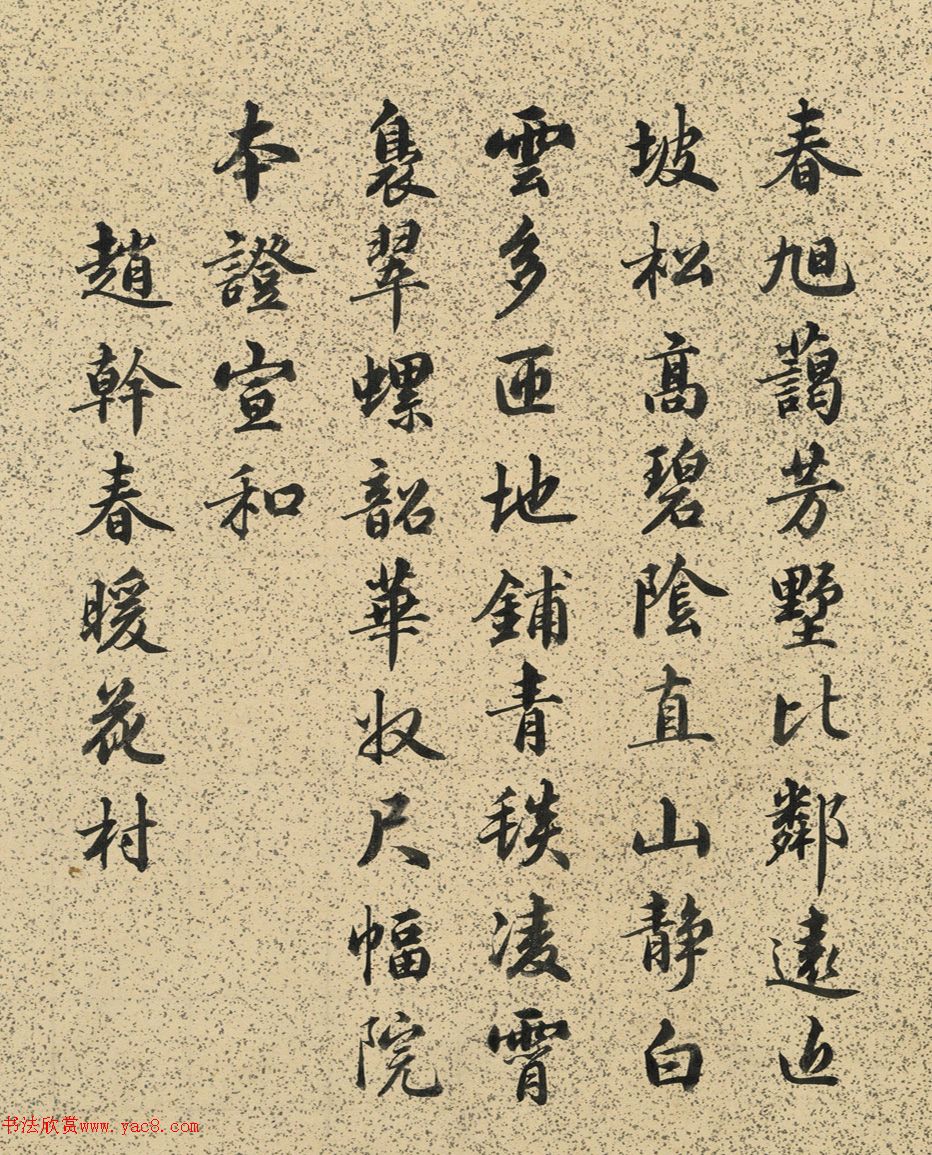 春旭藹芳墅比鄰遠近
坡松高碧陰直山靜白
雲多匝地鋪青毯凌霄
裊翠螺韶華收尺幅院
本證宣和
趙幹春暖花村
书法欣赏www.yac8.com